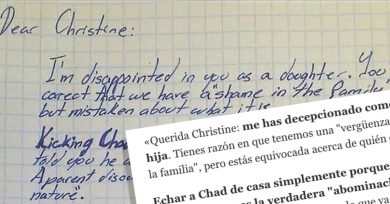 Dear Christine:
I'm disappointed in you as a daughter. You
correct that we have a "shame in the family
but mistaken about what it is
Kicking Cha
told you he
Apparent
nature".
«Querida Christine: me has decepcionado com
hija. Tienes razón en que tenemos una "vergüenza
la familia", pero estás equivocada acerca de quién
Echar a Chad de casa simplemente porque
la verdadera "abominac